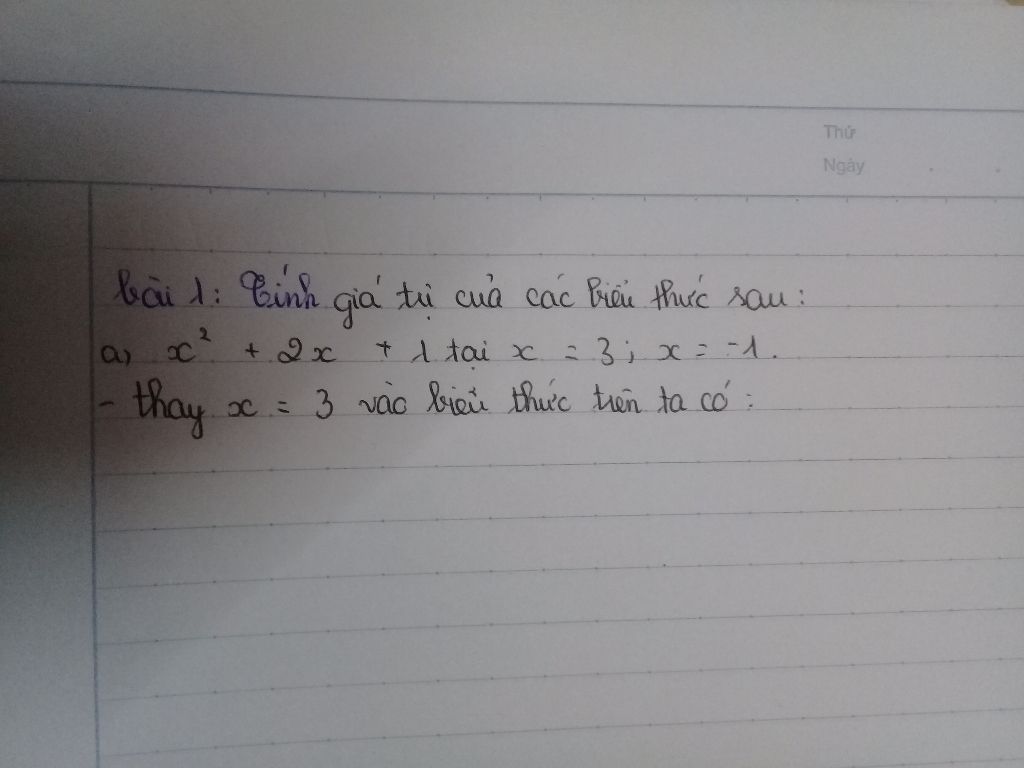 Thứ
Ngày
bài 1: Tính giá trị của các biểu thức sau:
a, x² + 2x + 1 tại x = 3; x = -1.
- thay x = 3 vào biểu thức trên ta có: